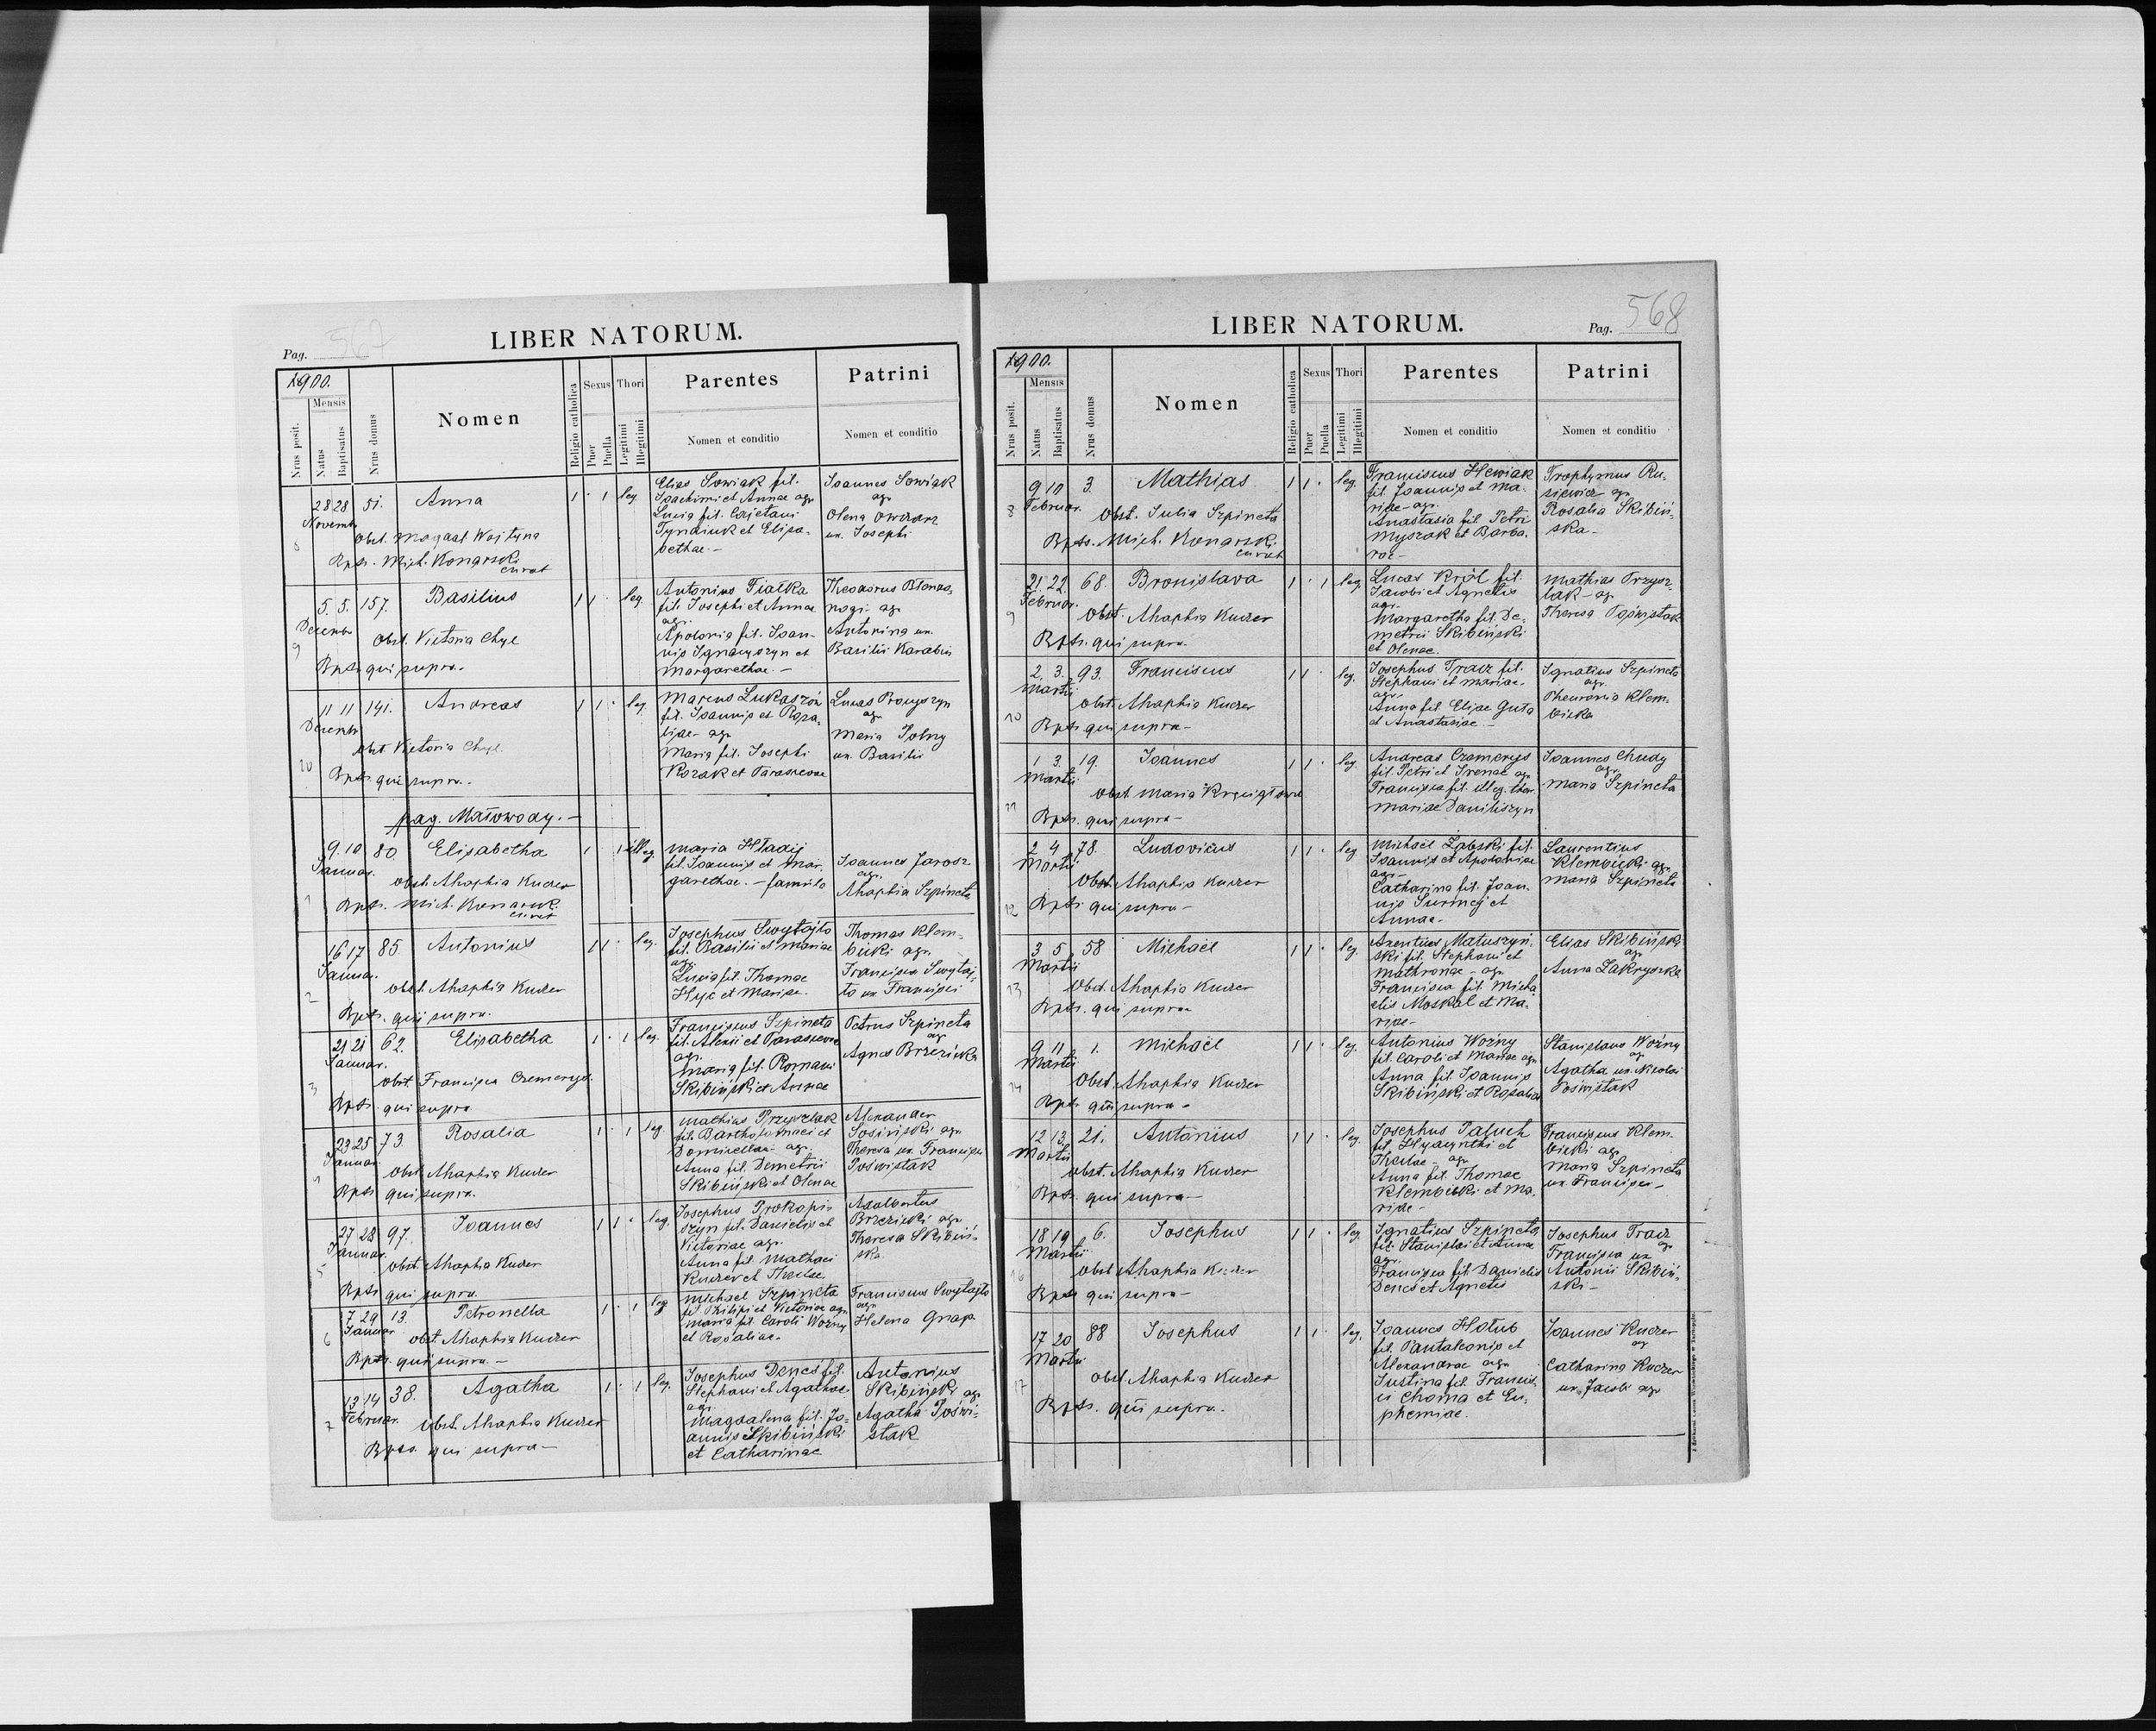 567
Pag.
LIBER NATORUM.
1900.
Mensis
Nrus posit.
Natus
Baptisatus
Nrus domus
Nomen
Religio catholica
Sexus
Puer
Puella
Thori
Legitimi
Illegitimi
Parentes
Nomen et conditio
Patrini
Nomen et conditio
8
28 28 51. Anna 1 · 1 leg.
Novemb.
obst. Magdal Wojtyna
Bpts. Mich. Konarski
curat
Elias Sowiak fil.
Joachimi et Annae agr.
Lucia fil. Cajetani
Tyndziuk et Elisa-
bethae.-
Joannes Sowiak
agr
Olena Owczarz
ux. Josephi
9
5. 5. 157. Basilius 1 1 · leg.
Decemb
obst. Victoria Chyc
Bpts qui supra.
Antonius Fiałka
fil. Josephi et Annae
agr.
Apolonia fil. Joan-
nis Ignacyszyn et
Margarethae.-
Theodorus
nogi agr
Antonina ux.
Basilii Karabin
10
11 11 141. Andreas 1 1 · leg.
Decemb
obst Victoria Chyc.
Bpts qui supra.
Marcus Lukaszów
fil. Joannis et Rosa-
liae- agr
Maria fil. Josephi
Kozak et Parascevae
Lucas
agr
Maria
ux. Basilii
pag. Małowody.-
1
9. 10 80. Elisabetha 1 · 1 illeg.
Januar.
obst. Ahaphia Kuczer
Bpts. Mich. Konarski
curat
Maria Hladij
fil. Joannis et Mar-
garethae.- famula
Joannes Jarosz
agr.
Ahaphia Szpineta
2
16 17 85. Antonius 1 1 · leg.
Januar.
obst. Ahaphia Kuczer
Bpts. qui supra.
Josephus Swytajło
fil. Basilii et Mariae
agr.
Lucia fil. Thomae
Hyc et Mariae.
Thomas Klem-
bicki agr.
Francisca Swytaj-
ło ux. Francisci
3
21 21 62. Elisabetha 1 · 1 leg.
Januar.
obst. Francisca Czemerys.
Bpts. qui supra
Franciscus Szpineta
fil. Alexii et Parascevae
agr.
Maria fil. Romani
Skibiński et Annae
Petrus Szpineta
agr
Agnes Brzezicka
4
23 25 73. Rosalia 1 · 1 leg
Januar
obst. Ahaphia Kuczer
Bpts qui supra.
Mathias Przyszlak
fil. Bartholomaei et
Dominellae- agr.
Anna fil. Demetrii
Skibiński et Olenae
Alexander
Sosiński agr
Theresa ux. Francisci
Poświstak
5
27 28 97. Joannes 1 1 · leg.
Januar.
obst. Ahaphia Kuczer
Bpts qui supra.
Josephus Prokopi-
szyn fil. Danielis et
Victoriae agr.
Anna fil. Mathaei
Kuczer et Theclae
Adalbertus
Brzezicki agr
Theresa Skibiń-
ska.
6
7. 29 13. Petronella 1 · 1 leg
Januar
obst. Ahaphia Kuczer
Bpts. qui supra.-
Michael Szpineta
fil. Philipi et Victoriae agr.
Maria fil. Caroli Woźny
et Rosaliae.
Franciscus Swytajło
agr.
Helena Gnap
7
13 14 38. Agatha 1 · 1 leg.
Februar.
obst. Ahaphia Kuczer
Bpts. qui supra-
Josephus Deneś fil.
Stephani et Agathae
agr.
Magdalena fil. Jo-
annis Skibiński
et Catharinae
Antonius
Skibiński agr
Agatha Poświ-
stak
568
LIBER NATORUM.
Pag.
1900.
Mensis
Nrus posit.
Natus
Baptisatus
Nrus domus
Nomen
Religio catholica
Sexus
Puer
Puella
Thori
Legitimi
Illegitimi
Parentes
Nomen et conditio
Patrini
Nomen et conditio
8
9 10 3. Mathias 1 1 · leg.
Februar.
obst. Julia Szpineta
Bpts. Mich. Konarski
curat
Franciscus Hewiak
fil. Joannis et Ma-
riae- agr.
Anastasia fil. Petri
Myszak et Barba-
rae-
Trophymus Ru-
siewicz agr.
Rosalia Skibiń-
ska-
9
21. 22. 68. Bronislava 1 · 1 leg
Februar.
obst. Ahaphia Kuczer
Bpts. qui supra.
Lucas Król fil.
Jacobi et Agnetis
agr.
Margaretha fil. De-
metrii Skibiński
et Olenae.
Mathias Przysz-
lak- agr
Theresa Poświstak
10
2. 3. 93. Franciscus 1 1 · leg.
Martii
obst. Ahaphia Kuczer
Bpts qui supra-
Josephus Tracz fil.
Stephani et Mariae-
agr.
Anna fil. Eliae Guta
et Anastasiae-
Ignatius Szpineta
agr.
Pheuronia Klem-
bicka
11
1 3. 19. Joannes 1 1 · leg
Martii
obst. Maria
Bpts. qui supra-
Andreas Czemerys
fil. Petri et Irenae agr
Francisca fil. illeg. thor.
Mariae Daniliszyn
Joannes Chudy
agr.
Maria Szpineta
12
2 4 78. Ludovicus 1 1 · leg
Martii
obst. Ahaphia Kuczer
Bpts qui supra-
Michael Zabski fil.
Joannis et Apoloniae
agr-
Catharina fil. Joan-
nis Surmej et
Annae-
Laurentius
Klembicki agr
Maria Szpineta
13
3 5 58 Michaël 1 1 · leg
Martii
obst. Ahaphia Kuczer
Bpts. qui supra
Axentius Matuszyń-
ski fil. Stephani et
Mathronae- agr
Francisca fil. Micha-
elis Moskal et Ma-
riae-
Elias Skibiński
agr
Anna Zakryszka
14
9 11 1. Michaël 1 1 · leg.
Martii
obst. Ahaphia Kuczer
Bpts qui supra-
Antonius Woźny
fil. Caroli et Mariae agr
Anna fil. Joannis
Skibiński et Rosaliae
Stanislaus Woźny
agr
Agatha ux. Nicolai
Poświstak
12 13 21. Antonius 1 1 · leg.
Martii
obst. Ahaphia Kuczer
Bpts. qui supra-
Josephus Paluch
fil. Hyacinthi et
Theclae- agr
Anna fil. Thomae
Klembicki et Ma-
riae-
Franciscus Klem-
bicki agr.
Maria Szpineta
ux. Francisci-
16
18 19 6. Josephus 1 1 · leg
Martii
obst. Ahaphia Kuczer
Bpts qui supra-
Ignatius Szpineta
fil. Stanislai et Annae
agr.
Francisca fil. Danielis
Deneś et Agnetis
Josephus Tracz
agr
Francisca ux
Antonii Skibiń-
ski-
17
17 20 88 Josephus 1 1 · leg.
Martii
obst. Ahaphia Kuczer
Bpts. qui supra.
Joannes Hołub
fil. Pantaleonis et
Alexandrae agr.
Justina fil. Francis-
ci Choma et Eu-
phemiae.
Joannes Kuczer
agr
Catharina Kuczer
ux. Jacobi agr